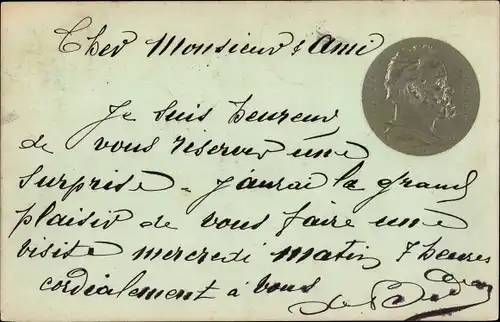 Cher Monsieur & Ami
Je suis heureux
de vous reserver une
surprise - j'aurai le grand
plaisir de vous faire une
visite mercredi matin, 7 heures
cordialement à vous